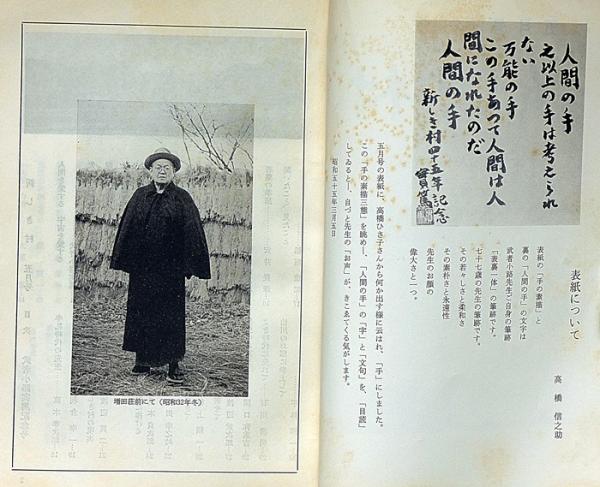 人間の手
之以上の手は考えられ
ない
万能の手
この手あって人間は人
間になれたのだ
人間の手
新しき村四十五年 記念
實篤
表紙について
高橋信之助
表紙の「手の素描」と
裏の「人間の手」の文字は
武者小路先生ご自身の筆跡
「表裏一体」の筆跡です。
七十七歳の先生の筆跡です。
その若々しさと柔和さ
その素朴さと永遠性
先生のお顔の
偉大さと一つ。
五月号の表紙に、高橋ひさ子さんから何か出す様に云はれ、「手」にしました。
この「手の素描三態」を眺め―、「人間の手」の「字」と「文句」を、「目読」
してゐると―、自づと先生の「お声」が、きこえてくる気がします。
昭和五十五年三月五日
増田荘前にて（昭和32年冬）